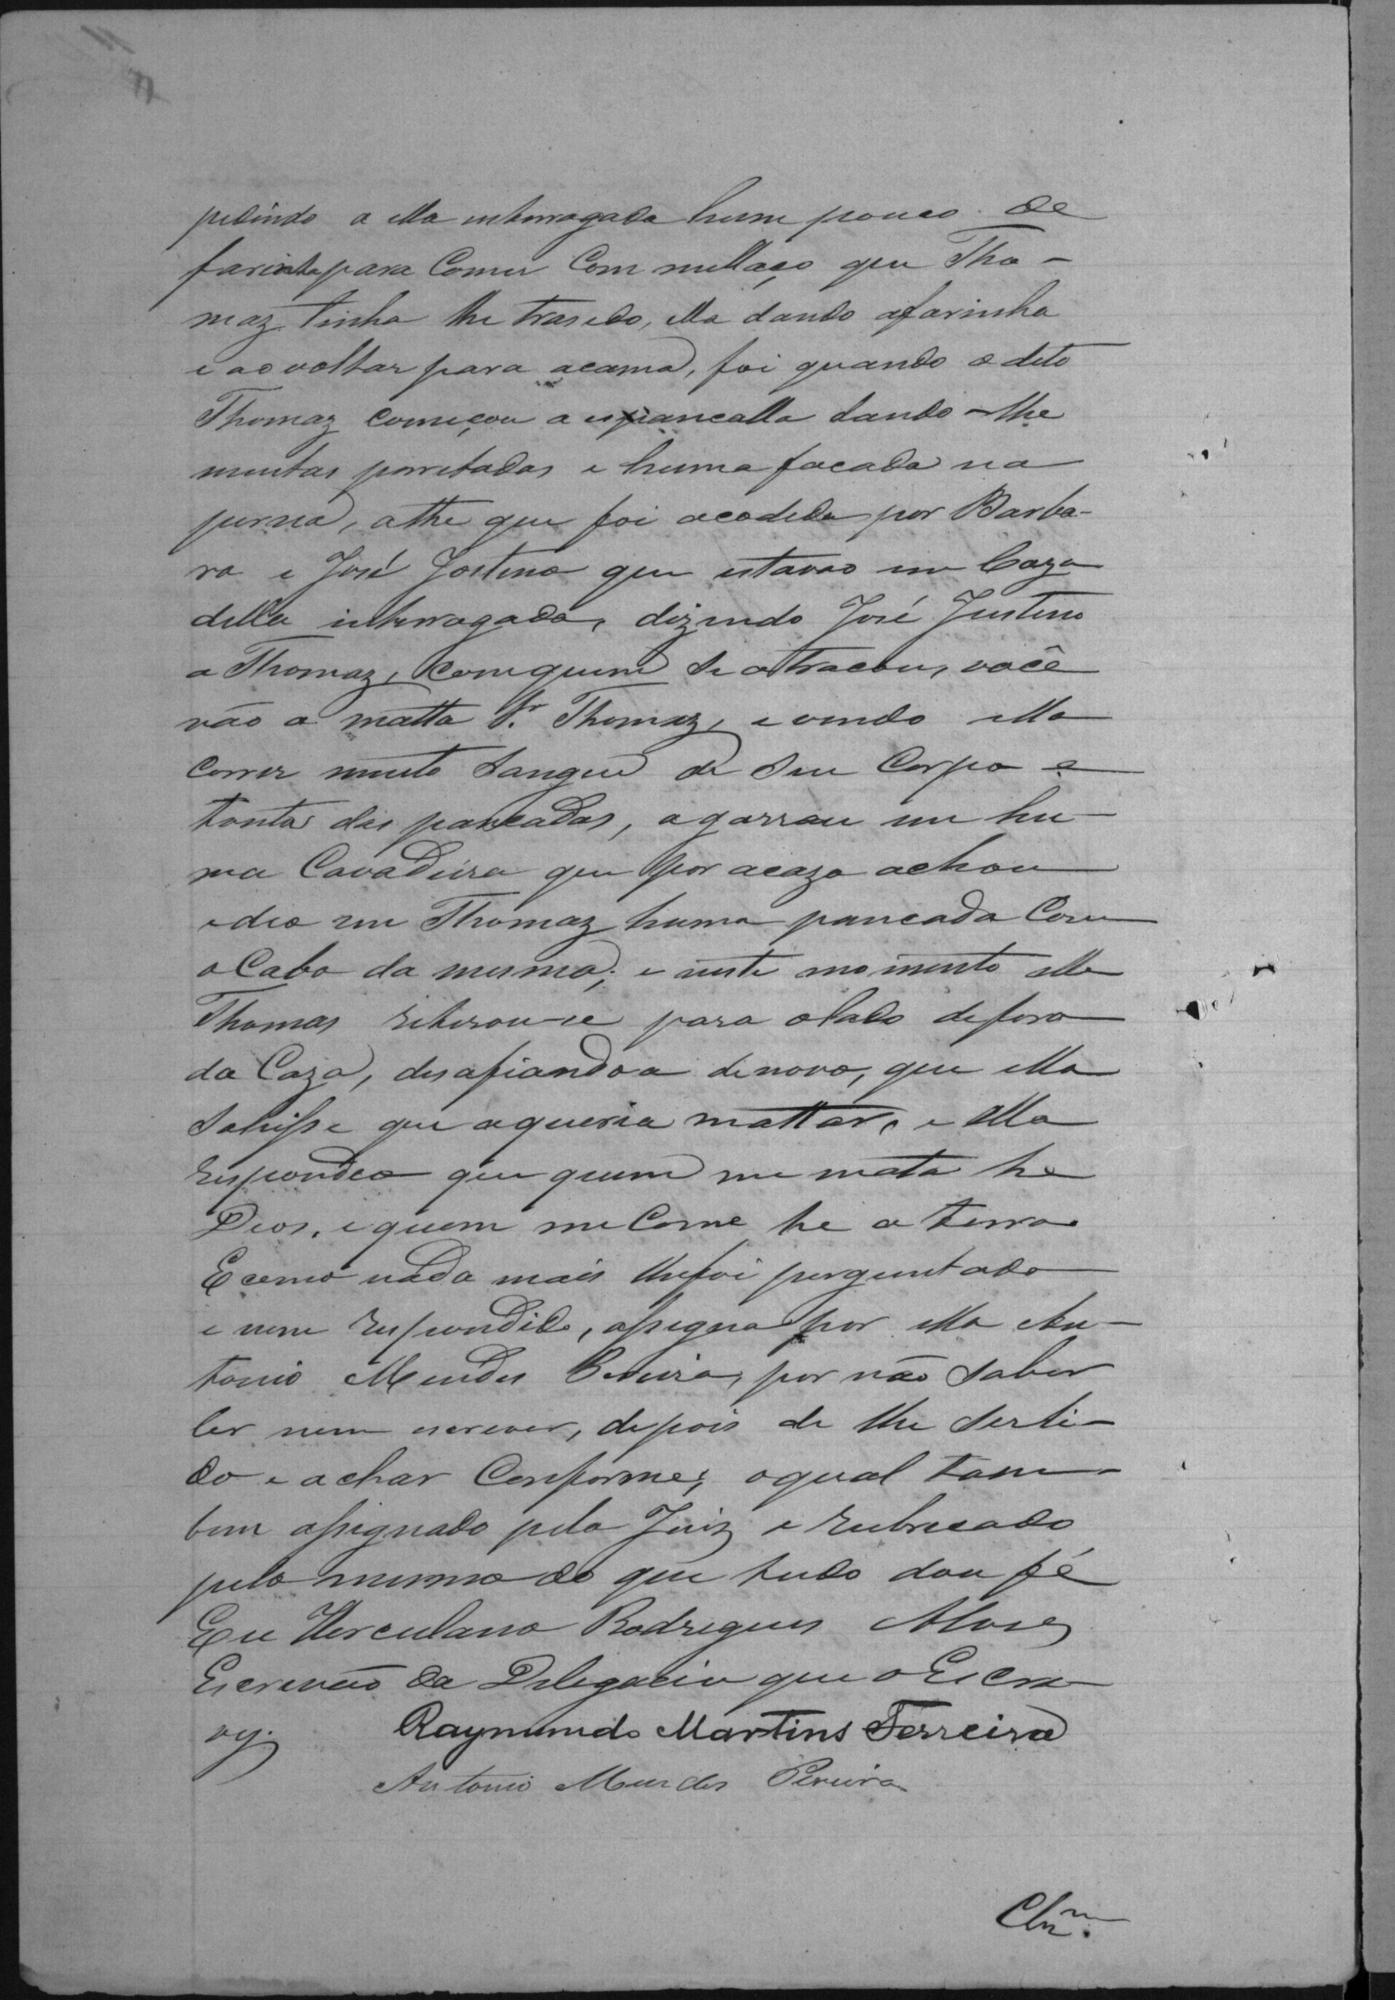 pedindo a ella interrogada hum pouco de
farinha para Comer Com mellaço que Tho-
maz tinha lhe trasido, ella dando a farinha
e ao voltar para acama, foi quando o dito
Thomaz começou a espancalla dando-lhe
muitas porretadas e huma facada na
perna, athe que foi acodida por Barba-
ra e José Jostino que estavão em Caza
della interrogada, dizendo José Justino
a Thomaz, comquem se atracou, você
não a matta Sr. Thomaz, e vendo ella
Correr muito Sangue de Seu Corpo e
tonta das pancadas, agarrou em hu-
ma Cavadeira que por acazo achou
e deo em Thomaz huma pancada Com
o Cabo da mesma; e neste momento elle
Thomas retirou-se para olado defora
da Caza, desafiandoa denovo, que ella
Sahisse que aqueria mattar, e ella
respondeo que quem me mata he
Deos, e quem me Come he a terra
E como nada mais lhefoi perguntado
e nem respondido, assigna por ella An-
tonio Mendes Pereira, por não Saber
ler nem escrever, depois de lhe Ser li-
do e achar Conforme, oqual tam-
bem assignado pelo Juiz e rubricado
pelo mesmo do que tudo dou fé
Eu Herculano Rodrigues Alves
Escrivão da Delegacia que o Escre
vy.
Raymundo Martins Ferreira
Antonio Mendes Pereira